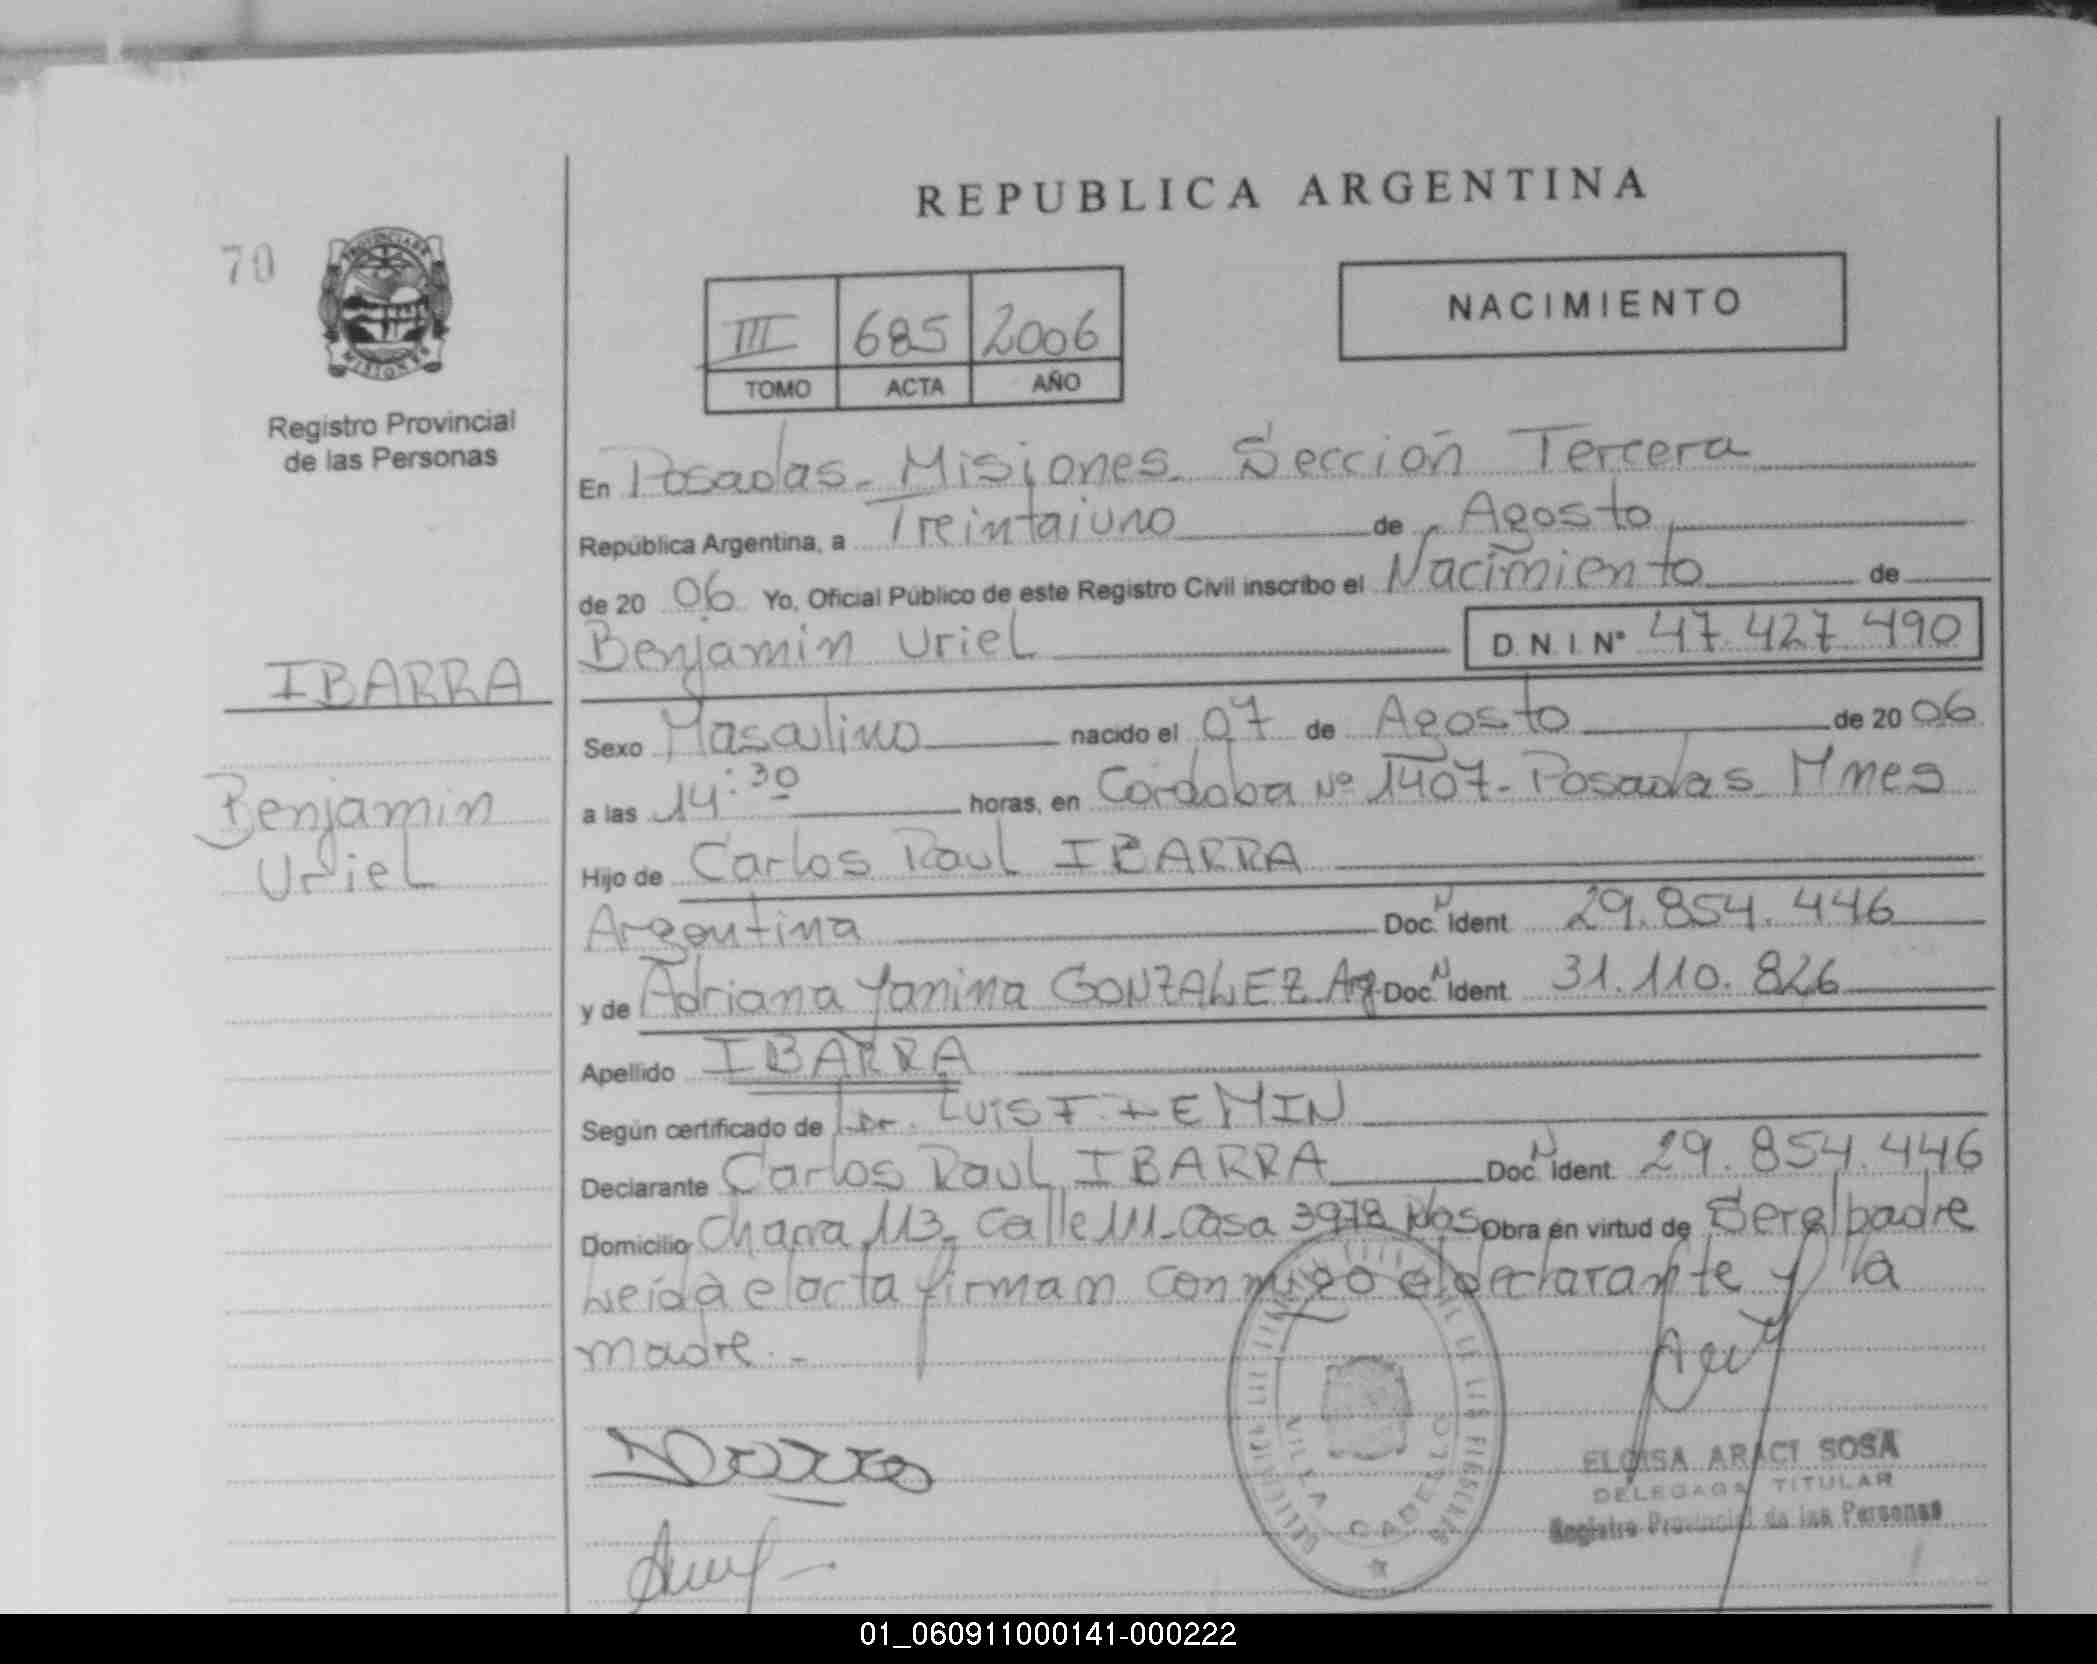 REPUBLICA ARGENTINA
70
PROVINCIA DE
MISIONES
Registro Provincial
de las Personas
III 685 2006
TOMO ACTA AÑO
NACIMIENTO
En Posadas - Misiones. Sección Tercera
República Argentina, a Treintaiuno de Agosto
de 20 06 Yo, Oficial Público de este Registro Civil inscribo el Nacimiento de
Benjamin Uriel D.N.I. N° 47.427.490
IBARRA
Benjamin
Uriel
Sexo Masculino nacido el 07 de Agosto de 20 06
a las 14:30 horas, en Córdoba Nº 1407 - Posadas Mnes
Hijo de Carlos Raul IBARRA
Argentina Doc. N Ident. 29.854.446
y de Adriana Yanina GONZALEZ Ag Doc. N Ident. 31.110.826
Apellido IBARRA
Según certificado de Dr. LUIS F.
Declarante Carlos Raul IBARRA Doc. N Ident. 29.854.446
Domicilio Chacra 113 - Calle 111 - Casa 3978 Pdas Obra en virtud de Ser el padre
Leída el acta firman conmigo el declarante y la
madre.-
VILLA CABELLO
ELOISA ARACI SOSA
DELEGADA TITULAR
Registro Provincial de las Personas
01_060911000141-000222